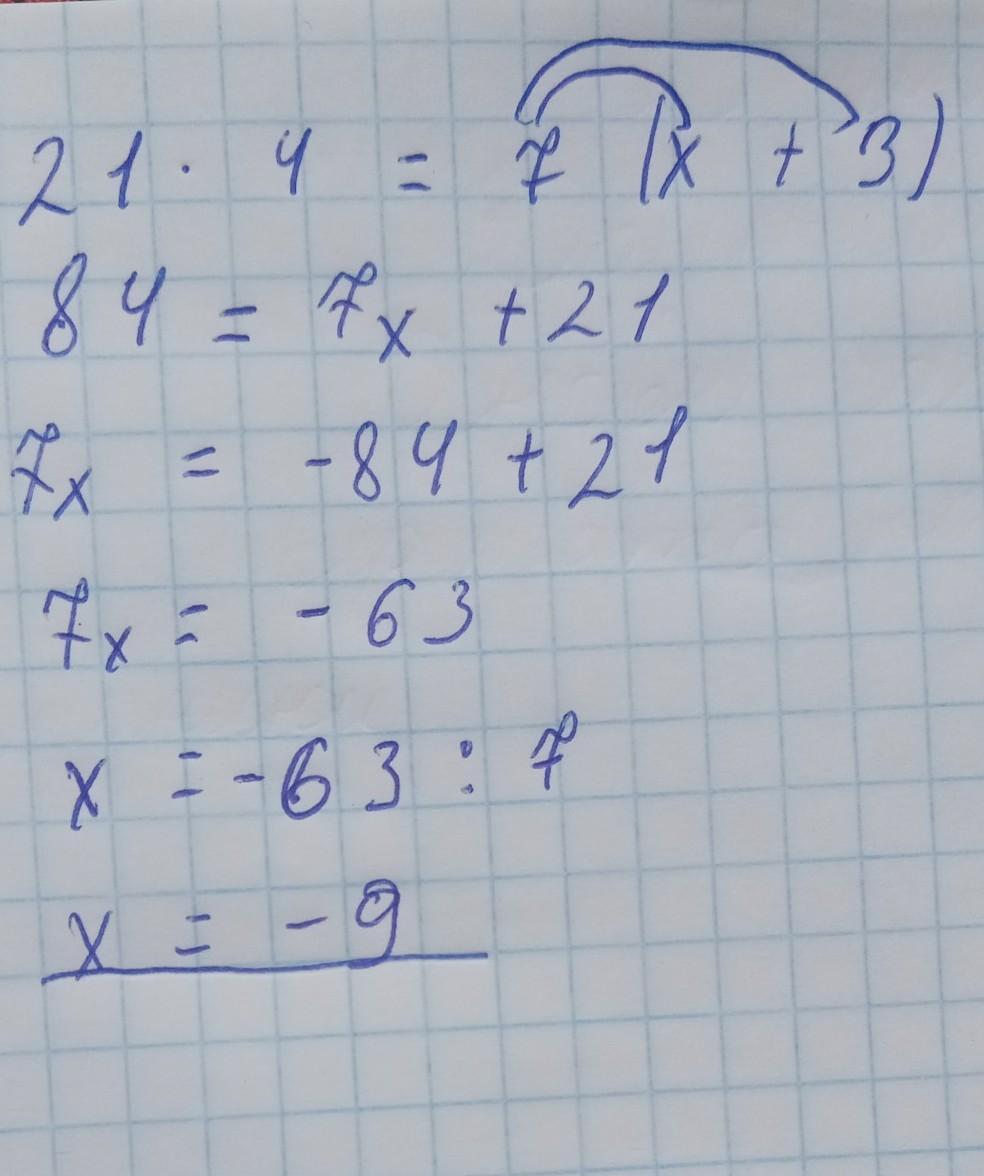 21 · 4 = 7 (x + 3)
84 = 7x + 21
7x = -84 + 21
7x = - 63
x = -63 : 7
x = - 9